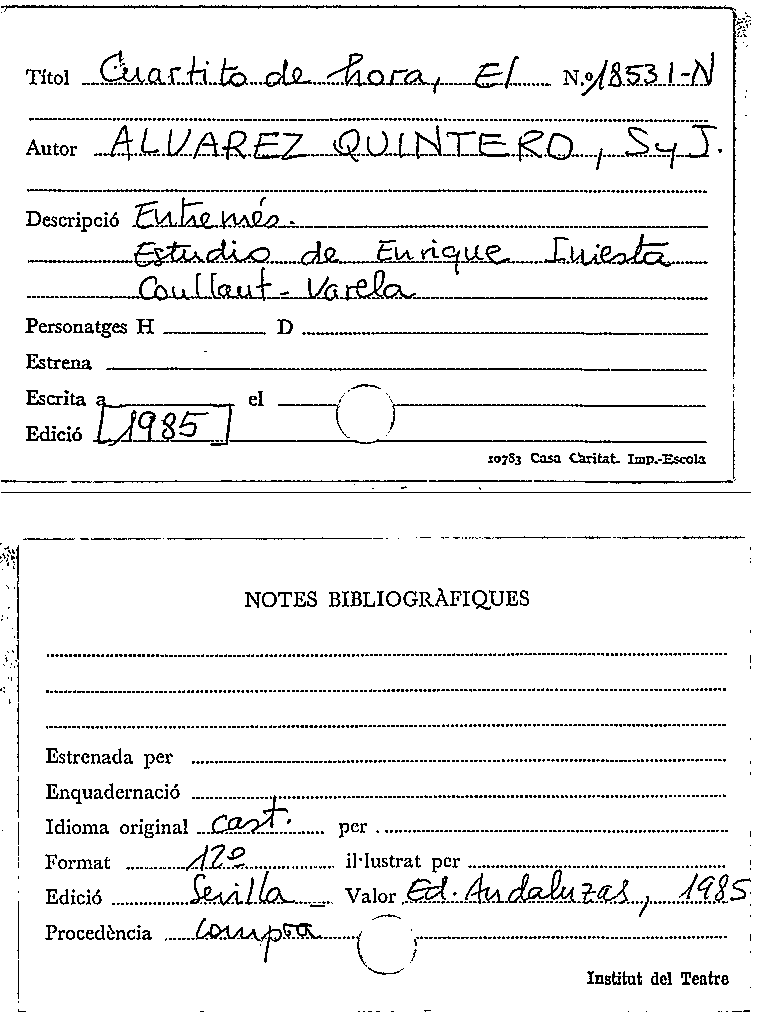 Títol Cuartito de hora, El N.º 18531-N
Autor ALVAREZ QUINTERO, S y J.
Descripció Entremés.
Estudio de Enrique Iniesta
Coullaut-Varela
Personatges H D
Estrena
Escrita a el
Edició [1985]
10783 Casa Caritat. Imp.-Escola
NOTES BIBLIOGRÀFIQUES
Estrenada per
Enquadernació
Idioma original cast. per
Format 12º il·lustrat per
Edició Sevilla - Valor Ed. Andaluzas, 1985
Procedència compra
Institut del Teatre